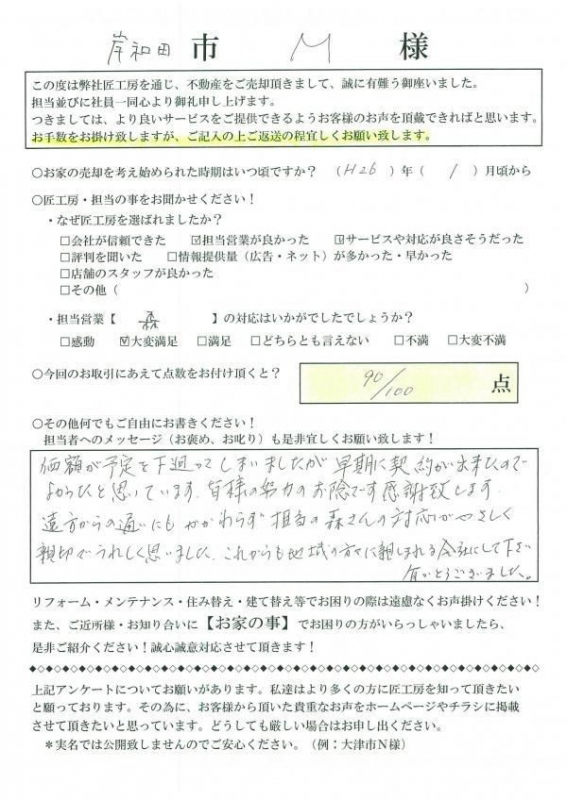 岸和田 市 M 様
この度は弊社匠工房を通じ、不動産をご売却頂きまして、誠に有難う御座いました。
担当並びに社員一同心より御礼申し上げます。
つきましては、より良いサービスをご提供できるようお客様のお声を頂戴できればと思います。
お手数をお掛け致しますが、ご記入の上ご返送の程宜しくお願い致します。
○お家の売却を考え始められた時期はいつ頃ですか？（H26）年（1）月頃から
○匠工房・担当の事をお聞かせください！
・なぜ匠工房を選ばれましたか？
□会社が信頼できた ☑担当営業が良かった ☑サービスや対応が良さそうだった
□評判を聞いた □情報提供量（広告・ネット）が多かった・早かった
□店舗のスタッフが良かった
□その他（ ）
・担当営業【 森 】の対応はいかがでしたでしょうか？
□感動 ☑大変満足 □満足 □どちらとも言えない □不満 □大変不満
○今回のお取引にあえて点数をお付け頂くと？ 90/100 点
○その他何でもご自由にお書きください！
担当者へのメッセージ（お褒め、お叱り）も是非宜しくお願い致します！
価額が予定を下廻ってしまいましたが早期に契約が出来たので
よかったと思いています。皆様の努力のお陰です感謝致します。
遠方からの通いにもかかわらず担当の森さんの対応がやさしく
親切でうれしく思いました。これからも地域の方々に親しまれる会社にして下さい
有がとうございました。
リフォーム・メンテナンス・住み替え・建て替え等でお困りの際は遠慮なくお声掛けください！
また、ご近所様・お知り合いに【お家の事】でお困りの方がいらっしゃいましたら、
是非ご紹介ください！誠心誠意対応させて頂きます！
上記アンケートについてお願いがあります。私達はより多くの方に匠工房を知って頂きたい
と願っております。その為に、お客様から頂いた貴重なお声をホームページやチラシに掲載
させて頂きたいと思っています。どうしても厳しい場合はお申し出ください。
＊実名では公開致しませんのでご安心ください。（例：大津市N様）